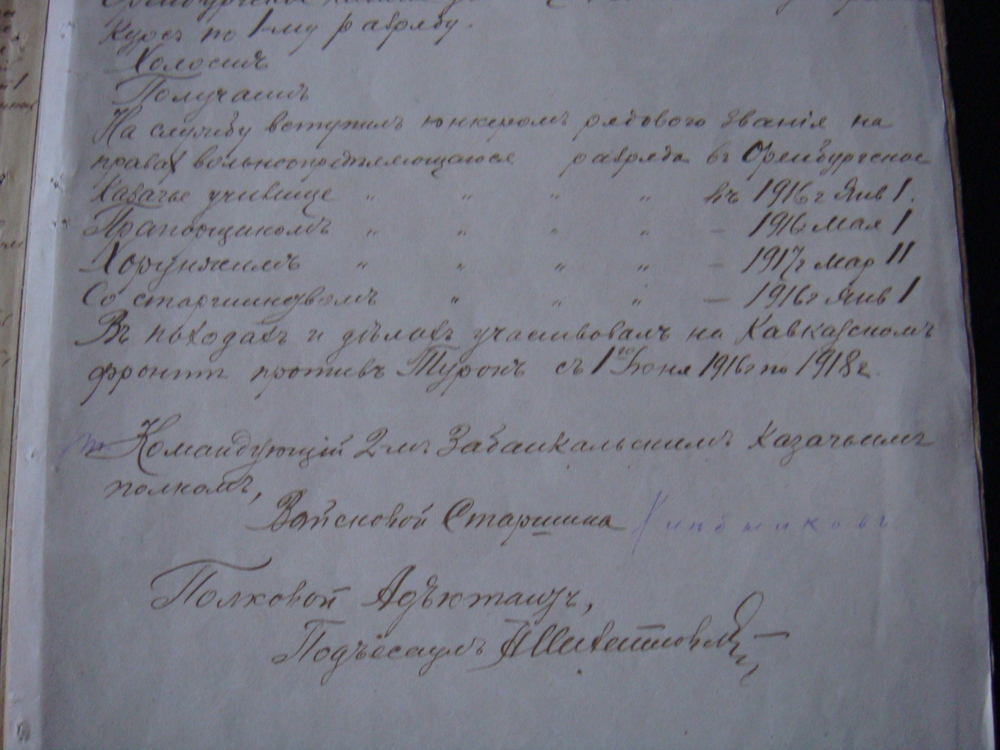 курсъ по 1-му разряду.
Холостъ
Получаетъ
На службу вступилъ юнкеромъ рядового званія на
правах вольноопредѣляющагося разряда въ Оренбургское
Казачье училище " " " " въ 1916 г Янв 1.
Прапорщикомъ " " " " — 1916 Мая 1
Хорунжимъ " " " " — 1917 г Мар 11
Со старшинствомъ " " " " — 1916 г Янв 1
Въ походахъ и дѣлахъ участвовалъ на Кавказскомъ
фронтѣ противъ Турокъ съ 1го Іюня 1916 г по 1918 г.
Командующій 2-мъ Забайкальскимъ Казачьимъ
полкомъ,
Войсковой Старшина
Полковой Адъютантъ,
Подъесаулъ